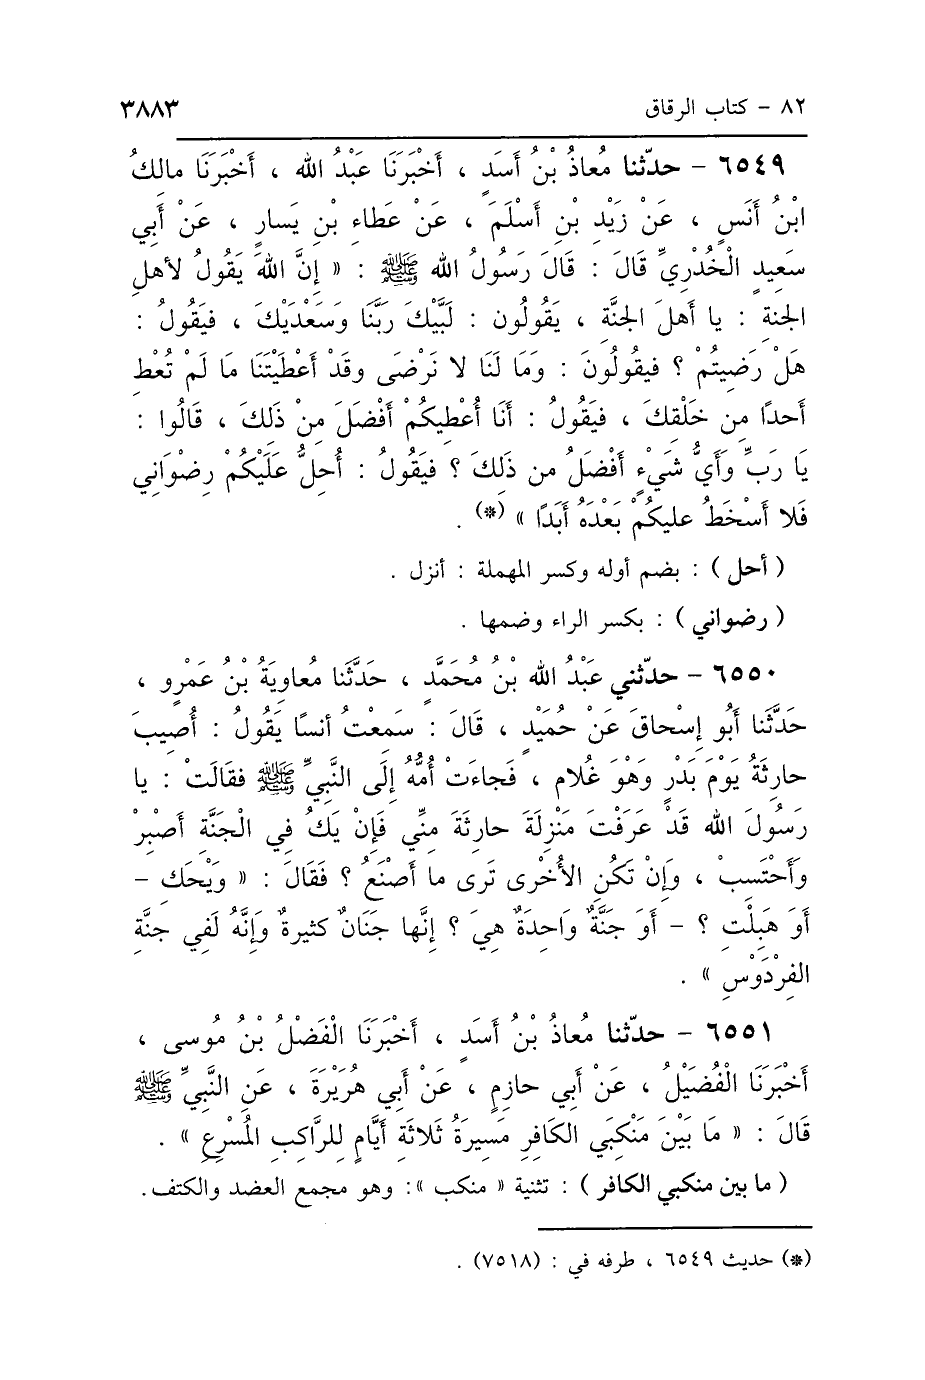 ٨٢ - كتاب الرقاق ٣٨٨٣
٦٥٤٩ - حدّثنا مُعاذُ بْنُ أَسَدٍ ، أَخْبَرَنَا عَبْدُ الله ، أَخْبَرَنَا مالكُ
ابْنُ أَنَسٍ ، عَنْ زَيْدِ بْنِ أَسْلَمَ ، عَنْ عَطَاءِ بْنِ يَسارٍ ، عَنْ أَبِي
سَعِيدٍ الْخُدْرِيِّ قَالَ : قَالَ رَسُولُ الله ﷺ : « إنَّ اللهَ يَقُولُ لأهلِ
الجنةِ : يا أهلَ الجنَّةِ ، يَقُولُون : لَبَّيْكَ رَبَّنَا وَسَعْدَيْكَ ، فيَقُولُ :
هَلْ رَضِيتُمْ ؟ فيقُولُونَ : وَمَا لَنَا لا نَرْضَى وقَدْ أَعْطَيْتَنَا مَا لَمْ تُعْطِ
أَحدًا مِن خَلْقِكَ ، فَيَقُولُ : أَنَا أُعْطِيكُمْ أَفْضَلَ مِنْ ذَلكَ ، قَالُوا :
يَا رَبِّ وَأَيُّ شَيْءٍ أَفْضَلُ من ذَلِكَ ؟ فيَقُولُ : أُحِلُّ عَلَيْكُمْ رِضْوَانِي
فَلا أَسْخَطُ عليكُمْ بَعْدَهُ أَبَدًا » (*) .
( أحل ) : بضم أوله وكسر المهملة : أنزل .
( رضواني ) : بكسر الراء وضمها .
٦٥٥٠ - حدّثني عَبْدُ الله بْنُ مُحَمَّدٍ ، حَدَّثَنا مُعاوِيَةُ بْنُ عَمْرٍو ،
حَدَّثَنا أَبُو إسْحاقَ عَنْ حُمَيْدٍ ، قَالَ : سَمِعْتُ أنسًا يَقُولُ : أُصِيبَ
حارِثَةُ يَوْمَ بَدْرٍ وَهْوَ غُلام ، فَجاءَتْ أُمُّهُ إِلَى النَّبِيِّ ﷺ فقَالَتْ : يا
رَسُولَ الله قَدْ عَرَفْتَ مَنْزِلَةَ حارِثَةَ مِنِّي فَإِنْ يَكُ فِي الْجَنَّةِ أَصْبِرْ
وَأَحْتَسِبْ ، وَإِنْ تَكُنِ الأُخْرى تَرى ما أَصْنَعُ ؟ فَقَالَ : « وَيْحَكِ -
أَوَ هَبِلْتِ ؟ - أَوَ جَنَّةٌ وَاحِدَةٌ هِيَ ؟ إنَّها جَنَانٌ كثيرةٌ وَإنَّهُ لَفِي جنَّةِ
الفِرْدَوْسِ » .
٦٥٥١ - حدّثنا مُعاذُ بْنُ أَسَدٍ ، أَخْبَرَنَا الْفَضْلُ بْنُ مُوسى ،
أَخْبَرَنَا الْفُضَيْلُ ، عَنْ أَبي حازِمٍ ، عَنْ أَبي هُرَيْرَةَ ، عَنِ النَّبِيِّ ﷺ
قَالَ : « مَا بَيْنَ مَنْكِبَيِ الكَافِرِ مَسِيرَةُ ثَلاثَةِ أَيَّامٍ لِلرَّاكِبِ المُسْرِعِ » .
( ما بين منكبي الكافر ) : تثنية « منكب »: وهو مجمع العضد والكتف.
(*) حديث ٦٥٤٩ ، طرفه في : (٧٥١٨) .